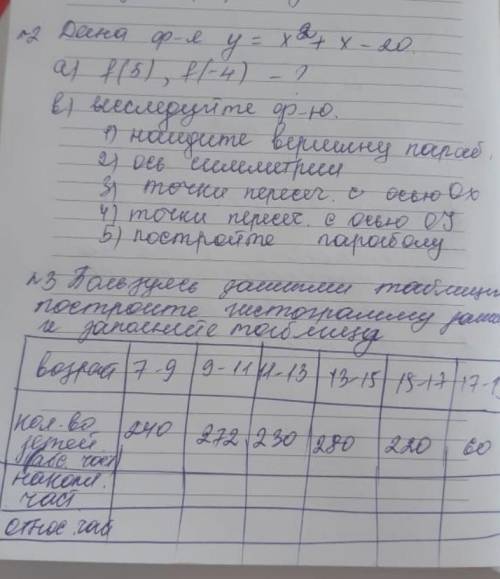 №2 Дана ф-я y = x² + x - 20.
а) f(5), f(-4) - ?
в) исследуйте ф-ю.
1) найдите вершину параб.
2) ось симметрии
3) точки пересеч. с осью Ох
4) точки пересеч. с осью ОУ
5) постройте параболу
№3 Пользуясь данными таблицы
постройте гистограмму
и заполните таблицу
возраст 7-9 9-11 11-13 13-15 15-17 17-1
кол-во 240 272 230 280 220 60
детей
(абс. част)
накопл.
част.
относ. час